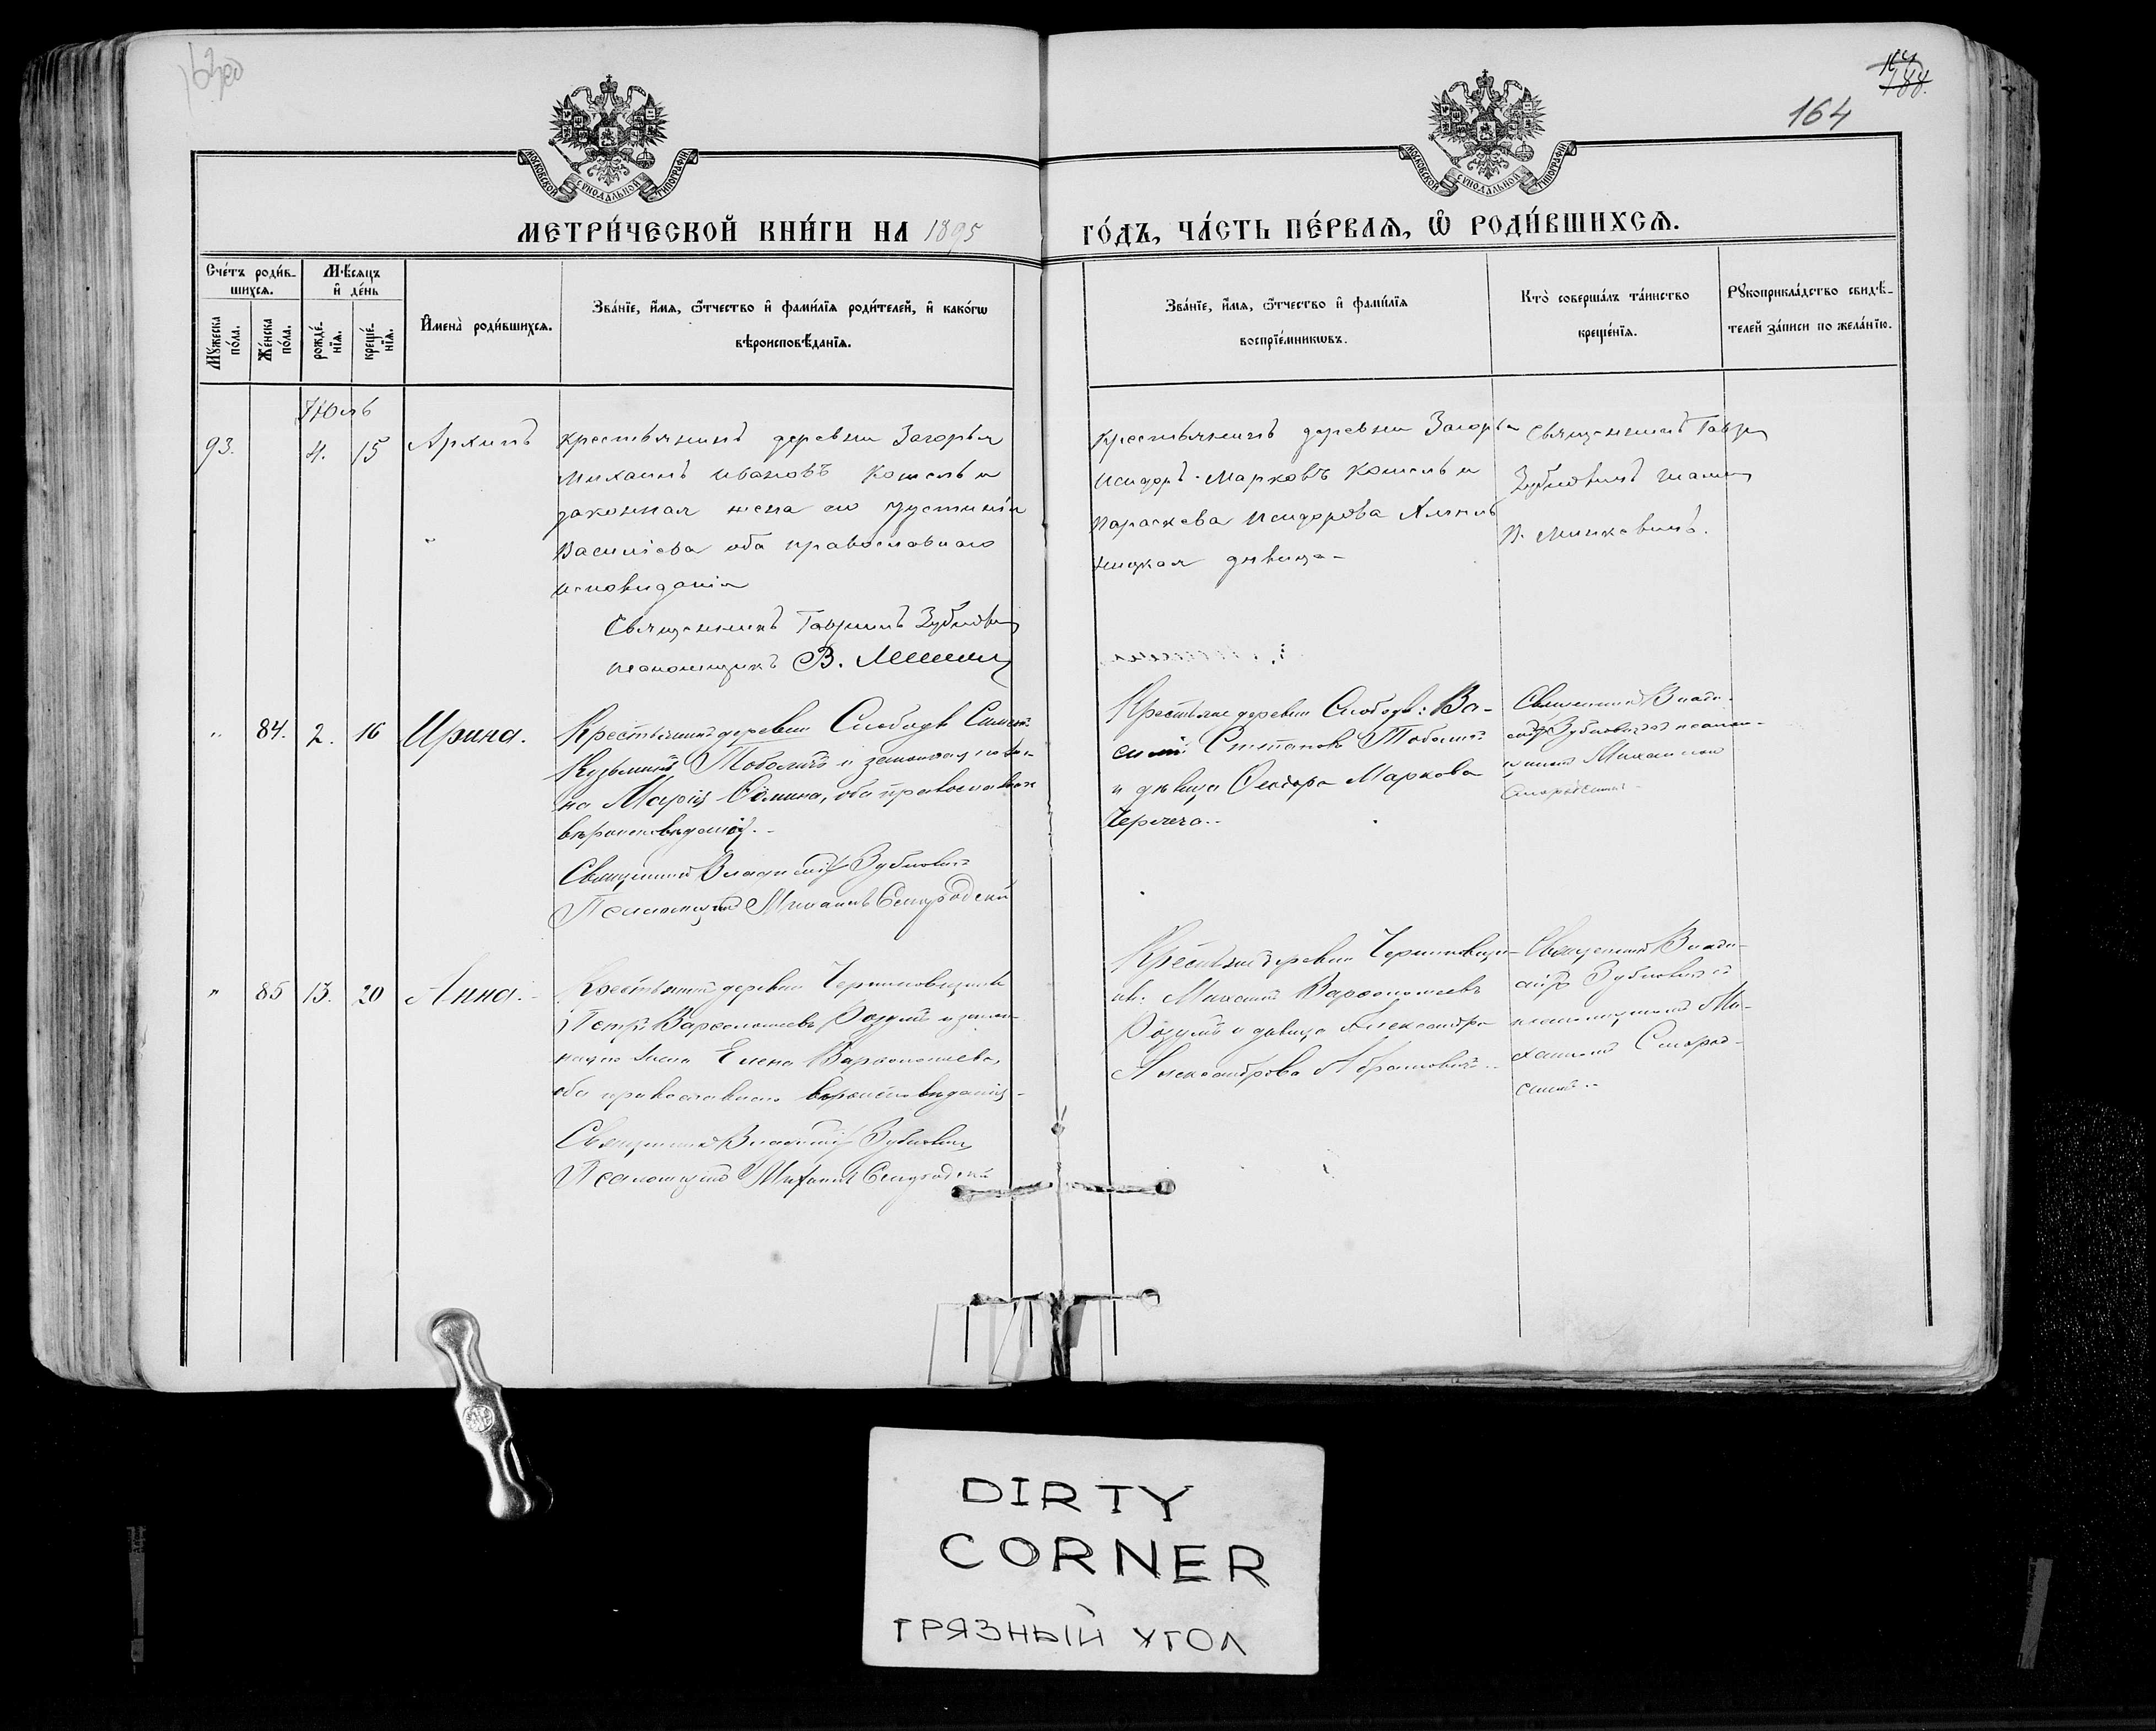 163об
164
188.
164
МОСКОВСКОЙ СУНОДАЛЬНОЙ ТИПОГРАФІИ
МОСКОВСКОЙ СУНОДАЛЬНОЙ ТИПОГРАФІИ
МЕТРИ́ЧЕСКОЙ КНИ́ГИ НА 1895 ГО́ДЪ, ЧА́СТЬ ПЕ́РВАѦ, Ѽ РОДИ́ВШИХСѦ.
Сче́тъ роди́в-
шихсѧ.
Мꙋ́жеска по́ла.
Же́нска по́ла.
Мѣ́сяцъ и҆ де́нь
рожде́-
нїѧ.
креще́-
нїѧ.
И҆мена̀ роди́вшихсѧ.
Зва́нїе, и҆́мѧ, ѻ҆́тчество и҆ фами́лїѧ роди́телей, и҆ како́гѡ
вѣроисповѣ́данїѧ.
Зва́нїе, и҆́мѧ, ѻ҆́тчество и҆ фами́лїѧ
воспрїе́мникѡвъ.
Кто̀ соверша́лъ та́инство
креще́нїѧ.
Рꙋкоприкла́дство свидѣ́-
телей за́писи по жела́нїю.
Июль
93. 4. 15 Архипъ
Крестьянинъ деревни Загорья
Михаилъ Ивановъ Кошель и
законная жена его Устинія
Василіева оба православнаго
исповиданія
Священникъ Гавріилъ Зубковичъ
псаломщикъ В.
Крестьянинъ деревни Загорья
Исидоръ Марковъ Кошель и
Параскева Исидорова
дѣвица
Священникъ Гавр.
В.
" 84. 2. 16 Ирина.
Крестьянинъ деревни Слободы Симеонъ
Кузьминъ Тоболичъ и законная же-
на Марія Ѳомина, оба православнаго
вѣроисповѣданія.
Священникъ Владиміръ Зубковичъ
Псаломщикъ Михаилъ
Крестьяне деревни Слободы: Ва-
силій Степановъ Тоболичъ
и дѣвица Ѳеодора Маркова
Священникъ Влади-
міръ Зубковичъ съ псалом-
щикомъ Михаиломъ
" 85 13. 20 Анна.
Крестьянинъ деревни
Петръ Варѳоломеевъ Розумъ и закон-
ная жена Елена Варѳоломеева,
оба православнаго вѣроисповѣданія
Священникъ Владиміръ Зубковичъ
Псаломщикъ Михаилъ
Крестьяне деревни
Михаилъ Варѳоломеевъ
Розумъ и дѣвица Александра
Александрова Абрамовичъ
Священникъ Влади-
міръ Зубковичъ съ
псаломщикомъ Ми-
хаиломъ
DIRTY
CORNER
ГРЯЗНЫЙ УГОЛ